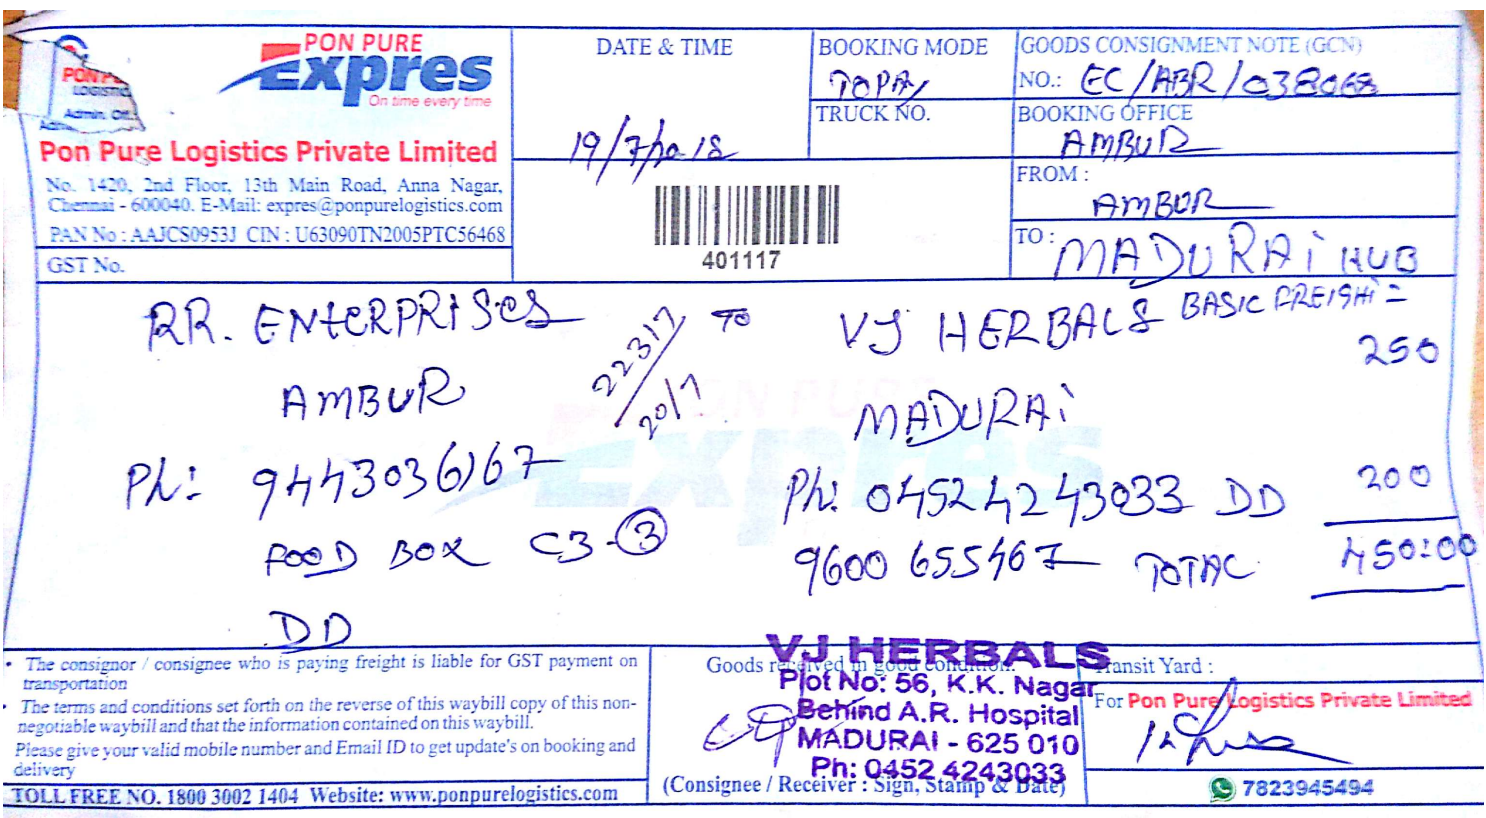 PON PURE
Expres
On time every time
Pon Pure Logistics Private Limited
No. 1420, 2nd Floor, 13th Main Road, Anna Nagar,
Chennai - 600040. E-Mail: expres@ponpurelogistics.com
PAN No : AAJCS0953J CIN : U63090TN2005PTC56468
GST No.
DATE & TIME
19/7/2018
401117
BOOKING MODE
TOPAY
TRUCK NO.
GOODS CONSIGNMENT NOTE (GCN)
NO.: EC/ABR/038068
BOOKING OFFICE
AMBUR
FROM :
AMBUR
TO : MADURAI HUB
RR. ENTERPRISES
AMBUR
Ph: 9443036167
FOOD BOX C3-3
DD
22317
20/7
TO
VJ HERBALS
MADURAI
Ph: 04524243033
9600655467
BASIC FREIGHT =
250
DD 200
TOTAL 450:00
• The consignor / consignee who is paying freight is liable for GST payment on
transportation
• The terms and conditions set forth on the reverse of this waybill copy of this non-
negotiable waybill and that the information contained on this waybill.
Please give your valid mobile number and Email ID to get update's on booking and
delivery
TOLL FREE NO. 1800 3002 1404 Website: www.ponpurelogistics.com
Goods received in good condition.
VJ HERBALS
Plot No: 56, K.K. Nagar
Behind A.R. Hospital
MADURAI - 625 010
Ph: 0452 4243033
(Consignee / Receiver : Sign, Stamp & Date)
Transit Yard :
For Pon Pure Logistics Private Limited
7823945494